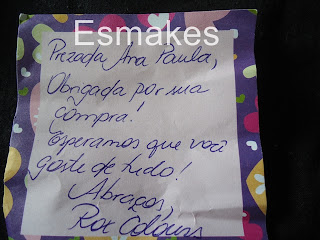 Esmakes
Prezada Ana Paula,
Obrigada por sua
compra!
Esperamos que você
goste de tudo!
Abraços,
Rox Colours